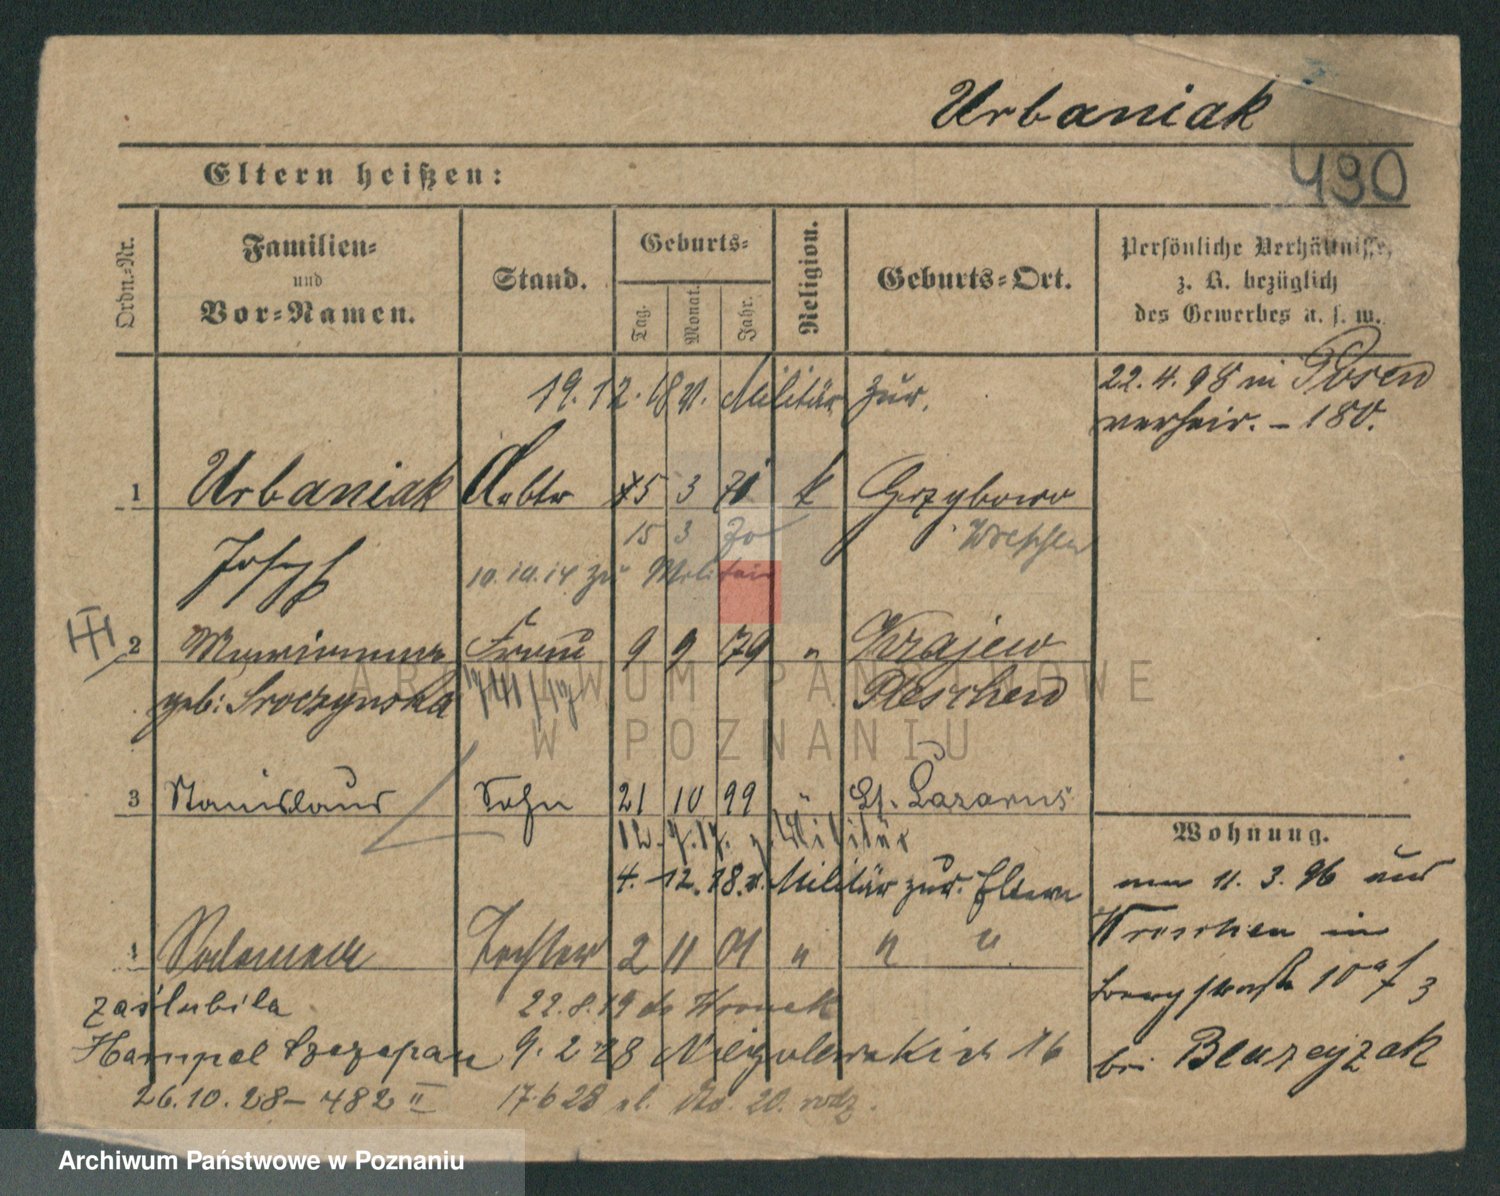 Urbaniak
490
Eltern heißen:
Ordn.-Nr.
Familien-
und
Vor-Namen.
Stand.
Geburts-
Tag.
Monat.
Jahr.
Religion.
Geburts-Ort.
Persönliche Verhältnisse,
z. B. bezüglich
des Gewerbes u. s. w.
19.12.18 v. Militär zur.
22.4.98 in Posen
verheir. - 180.
1 Urbaniak Arbtr 15 3 70 k Grzybowo
15 3 70 Wreschen
Josef
10.10.14 zu Militair
2 Marianna Frau 9 9 79 " Krajew
geb: Sroczynska Pleschen
3 Stanislaus Sohn 21 10 99 " St. Lazarus
12.7.17. z. Militär
4.-12.18. v. Militär zur. Eltern
Wohnung.
von 11. 3. 96 aus
Wreschen in
10a
4 Tochter 2 11 01 " " "
zaślubiła 22.8.19
Hampel Szczepan 9.2.28 Niegolewskich 16
bei Blaszczak
26.10.28 - 482 II 17.6.28
ARCHIWUM PAŃSTWOWE
W POZNANIU
Archiwum Państwowe w Poznaniu